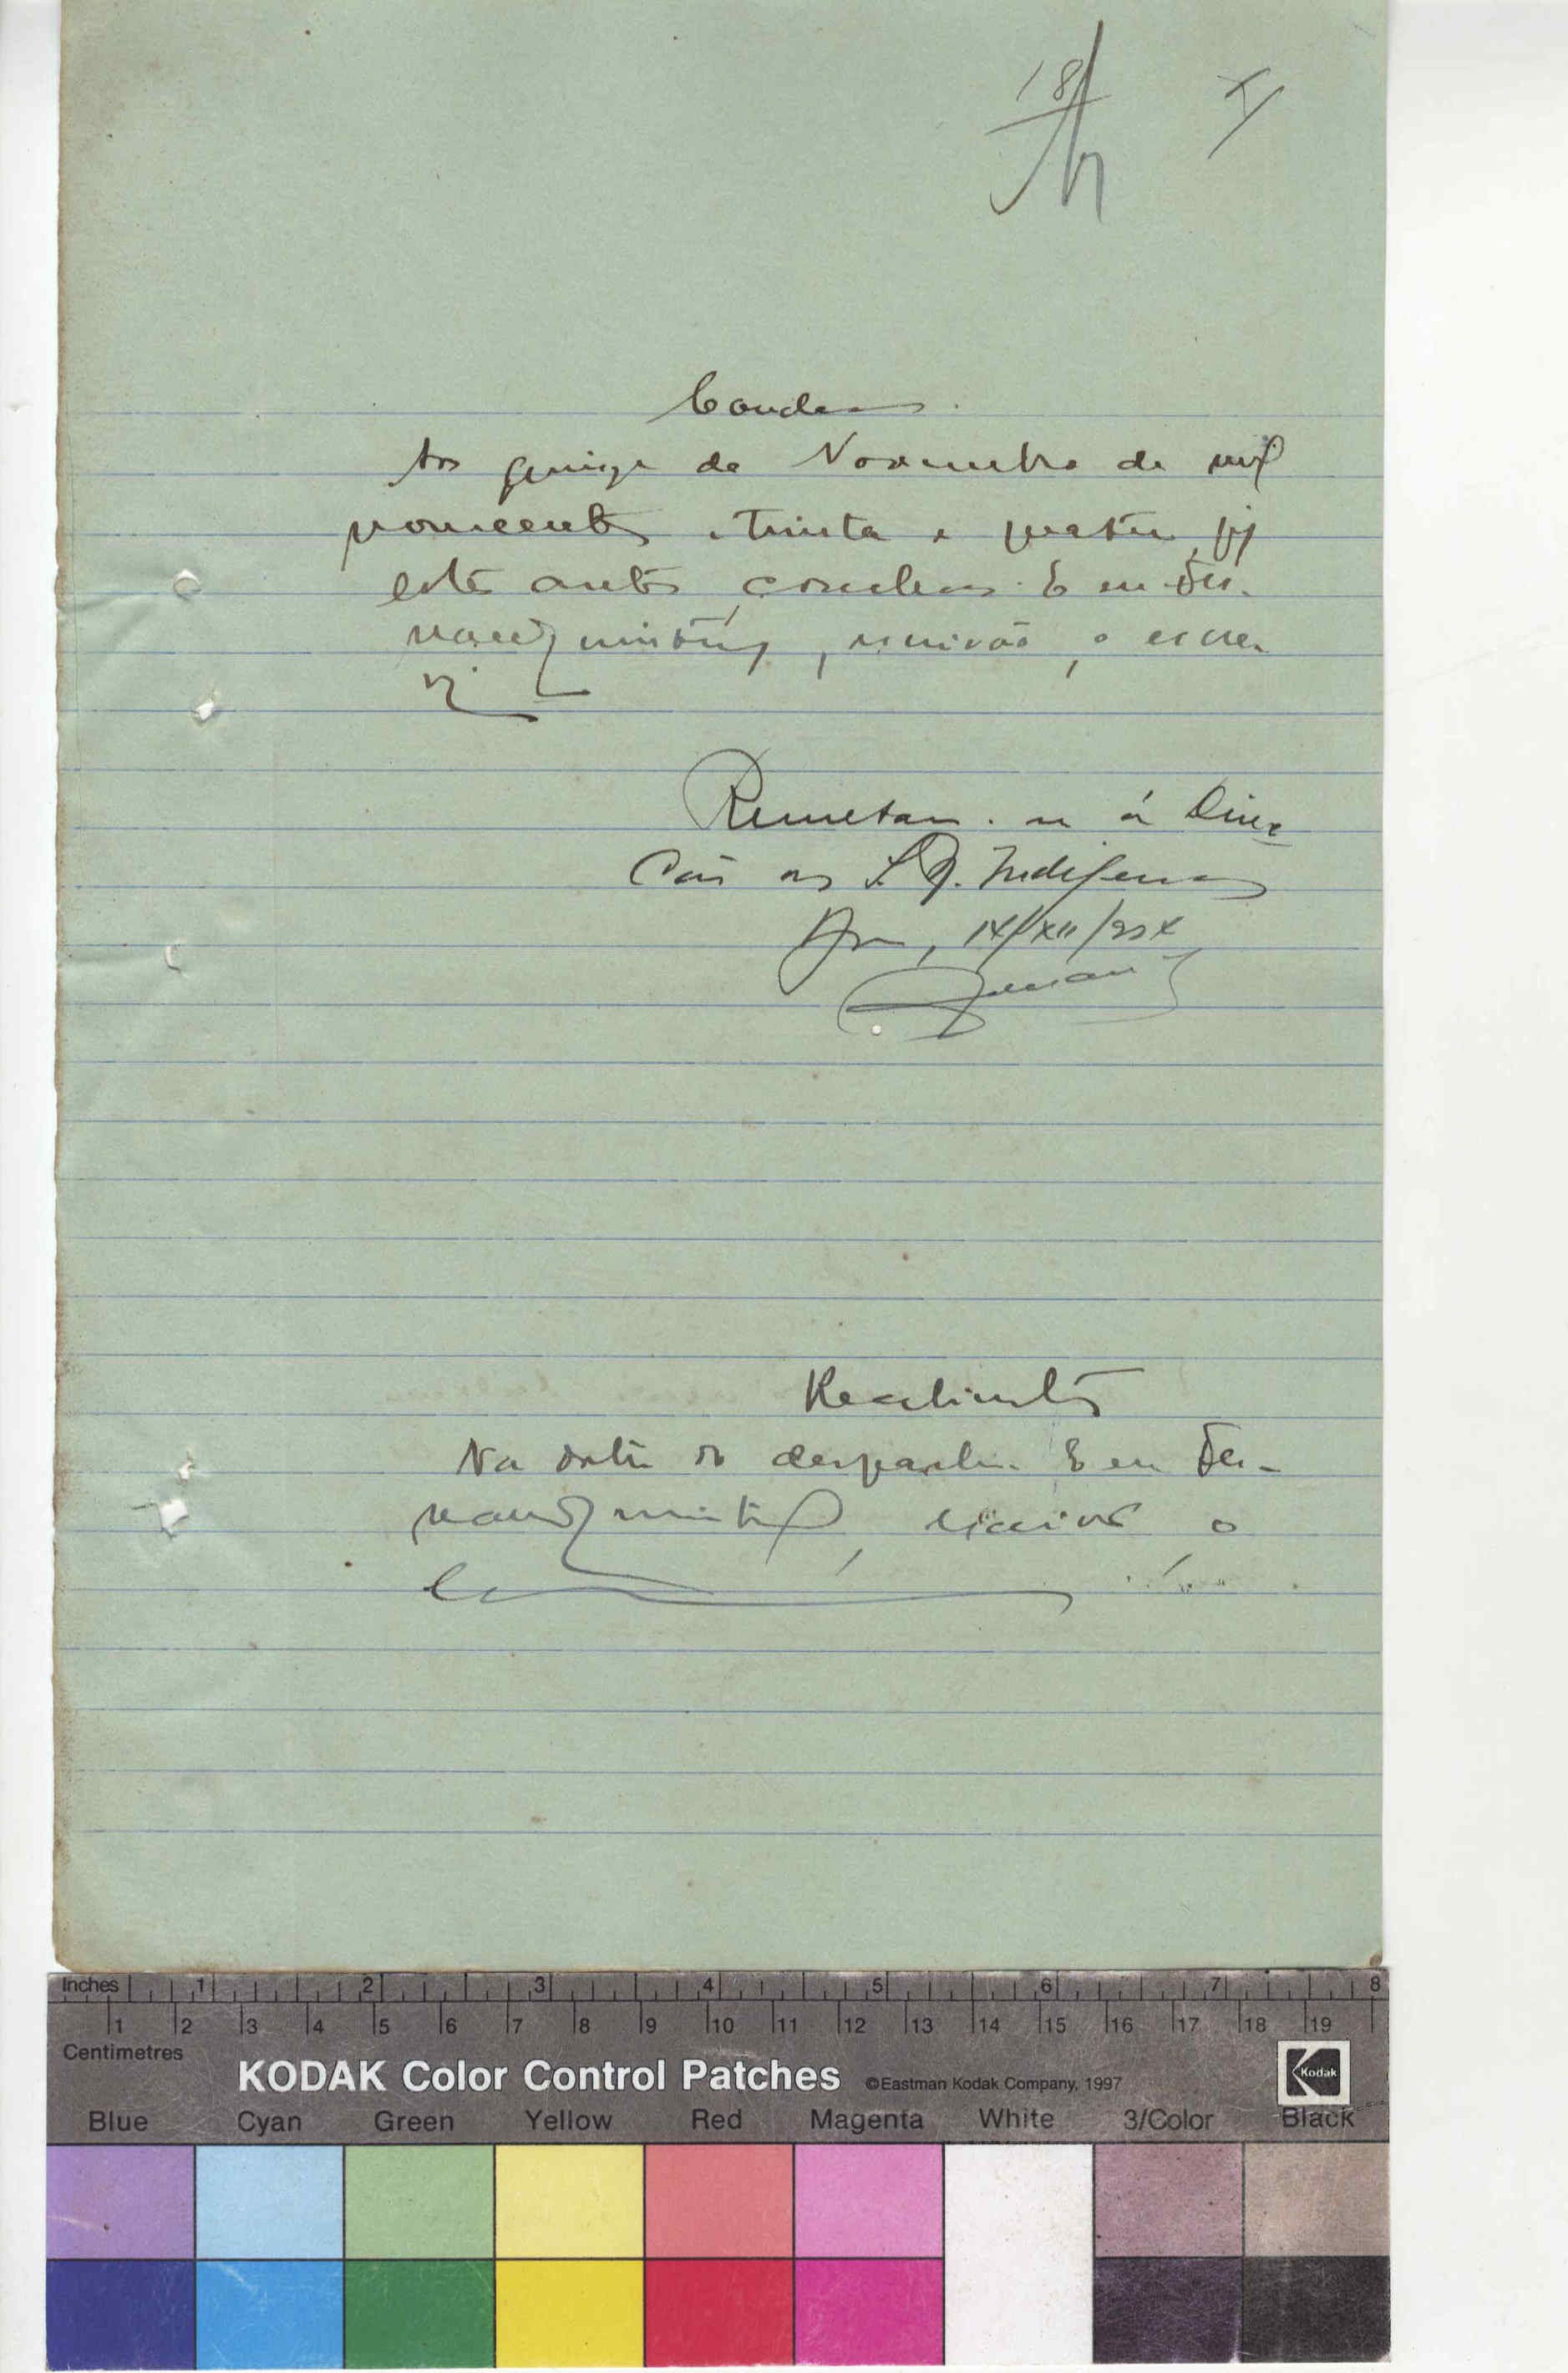 18
Conclusos.
Aos quinze de Novembro de mil
novecentos e trinta e quatro, fiz
estes autos conclusos. E eu Fer-
escrivão, o escre-
vi
Remetam-se á Direc
ção dos S. N. Indígenas
14/XII/934
Recebimento
Na data do despacho. E eu Fer-
escrivão, o
Inches 1 2 3 4 5 6 7 8
1 2 3 4 5 6 7 8 9 10 11 12 13 14 15 16 17 18 19
Centimetres
KODAK Color Control Patches ©Eastman Kodak Company, 1997 Kodak
Blue Cyan Green Yellow Red Magenta White 3/Color Black